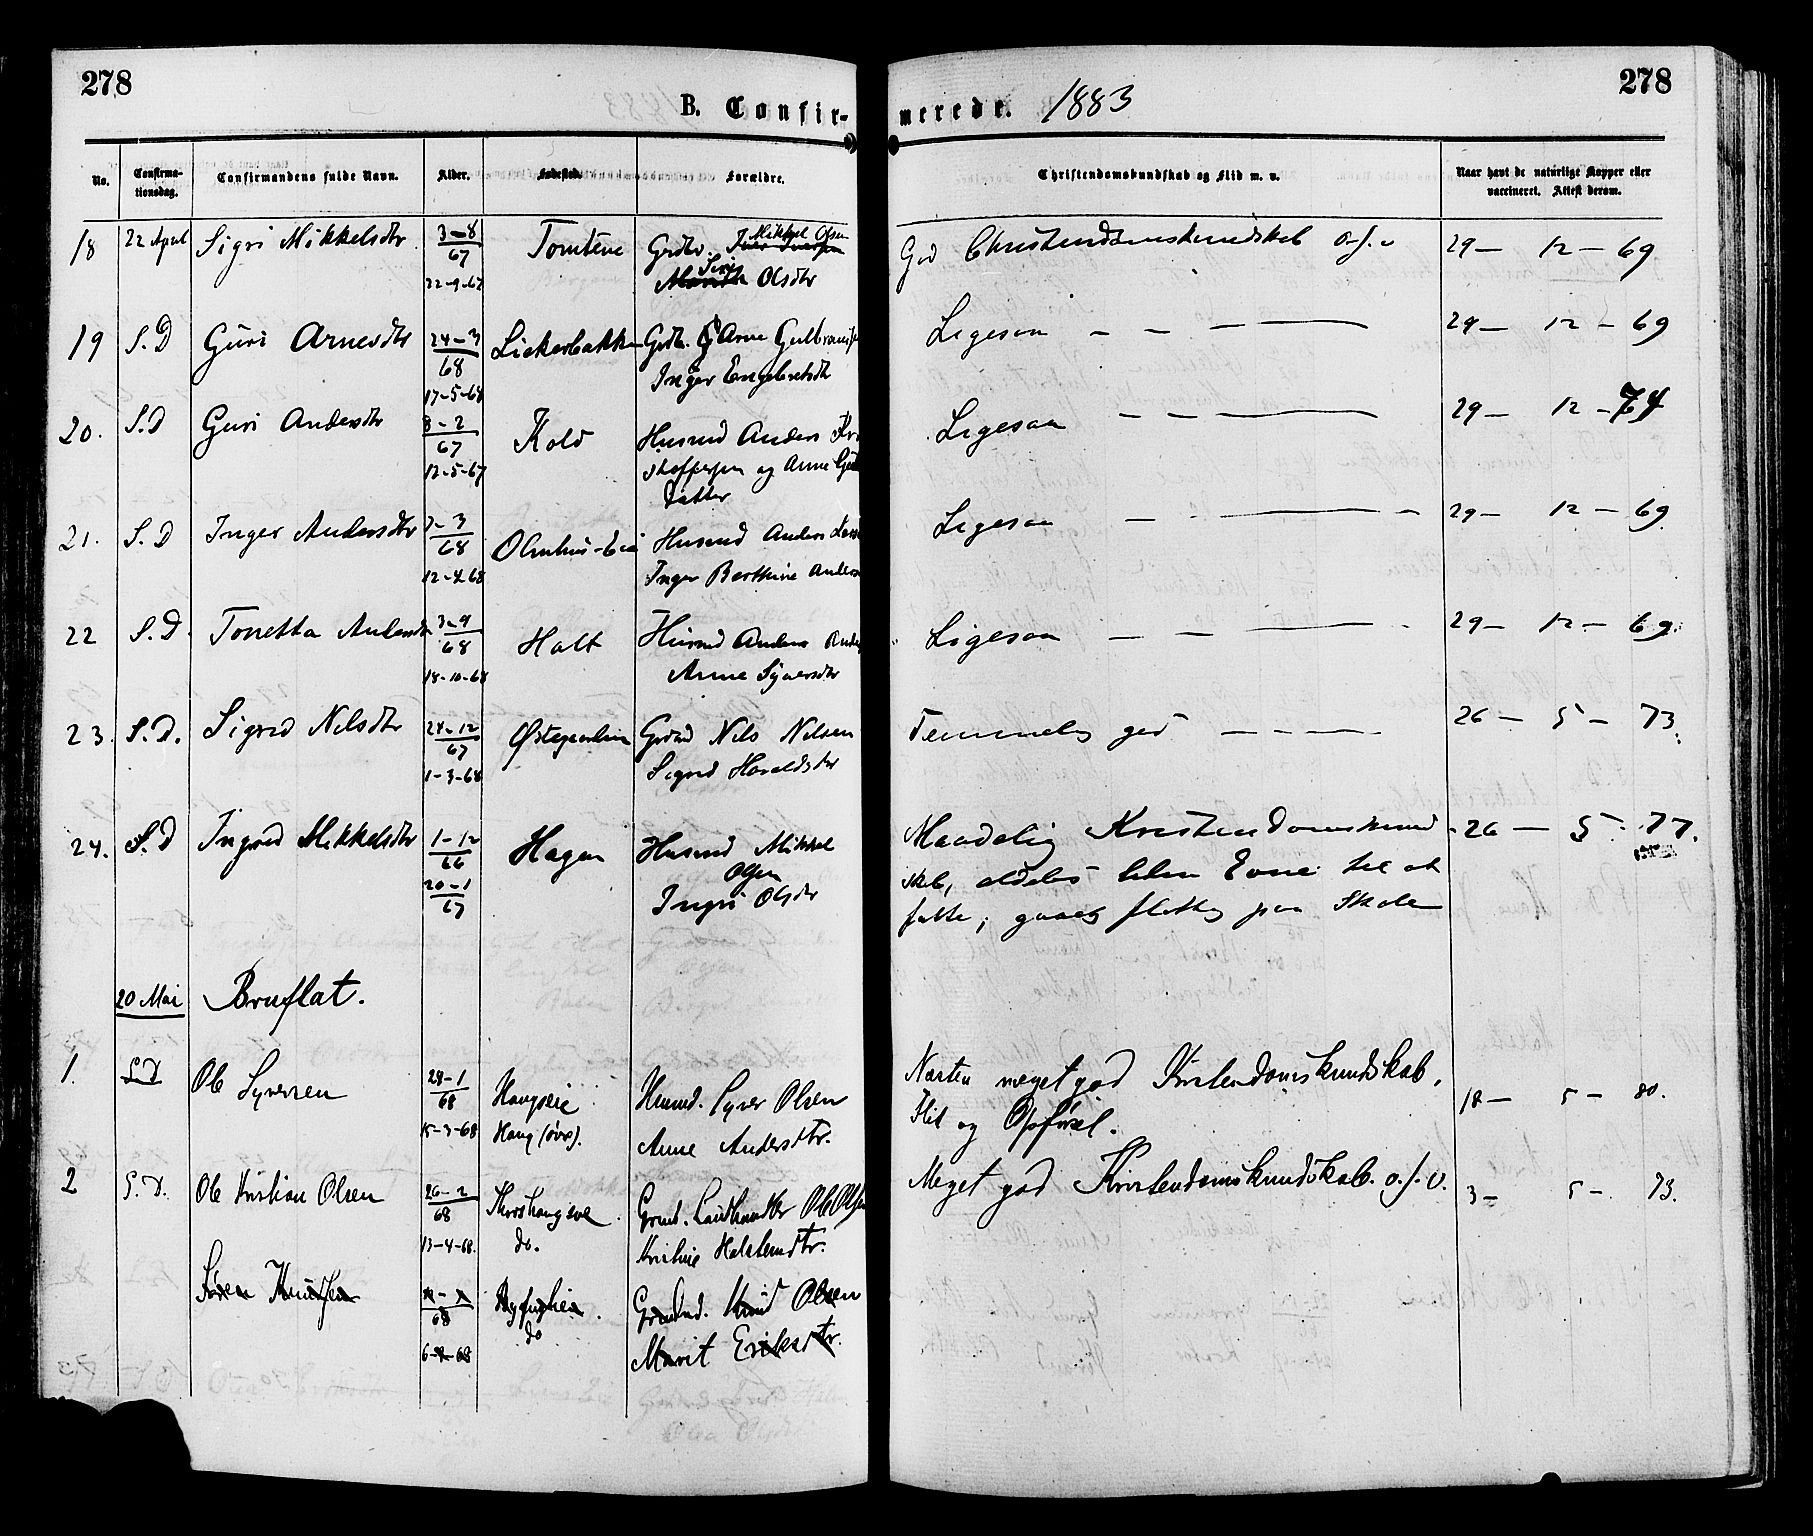 278
278
B. Confir-
merede. 1883
No.
Confirma-
tionsdag.
Confirmandens fulde Navn.
Alder.
Fødested.
Forældre.
Christendomskundskab og Flid m. v.
Naar havt de naturlige Kopper eller
vaccineret. Attest derom.
18 22 April Sigri Mikkelsdtr 3-8 Tomtene Grdbr. Mikkel Olsen God Christendomskundskab o.s.v 29 - 12 - 69
67
22-9-67 Siri Olsdtr
19 S.D Guri Arnesdtr 24-3 Liekerbakken Grdb. Arne Gulbrands Ligesaa - - - 29 - 12 - 69
68 Inger Engebretsdtr
17-5-68
20. S.D Guri Andersdtr 8-2 Kold Husmd Anders Kri Ligesaa - - - 29 - 12 - 74
67 stoffersen og Anne
12-5-67 datter
21. S.D Inger Andersdtr 3 Husmd Anders Ligesaa - - - 29 - 12 - 69
68
12-4-68 Inger Berthine Anders
22 S.D. Tonetta 3-9 Halt Husmd Anders Ande Ligesaa - - - 29 - 12 - 69.
68
18-10-68 Anne Syversdtr
23. S.D. Sigrid Nilsdtr 24-12 Grdmd Nils Nilsen Temmelig god - - - 26 - 5 - 73.
67
1-3-68 Sigrid Haraldsdtr
24. S.D Ingrid Mikkelsdtr 1-12 Hagen Husmd Mikkel Maadelig Kristendomskund 26 - 5 - 77.
66 Olsen
20-1 Ingri Olsdtr skab, aldeles liden Evne til at
67 fatte; paa Skole
20 Mai Bruflat.
1. S.D Ole Syversen 28-1 Haugseie Husmd. Syver Olsen Næsten meget god Kristendomskundskab,
68
15-3-68 Haug (øvre). Anne Andersdtr. Flid og Opførsel. 18 - 5 - 80.
2 S.D. Ole Kristian Olsen 26-2 Grmd. Landhandler Ole Olsen Meget god Kristendomskundskab. o.s.v. 3 - 5 - 73.
68
13-4-68. do. Kristine Halstensdtr.
Søren Knudsen Grdmd. Knud Olsen
68 do
6-9-68 Marit Eriksdtr.